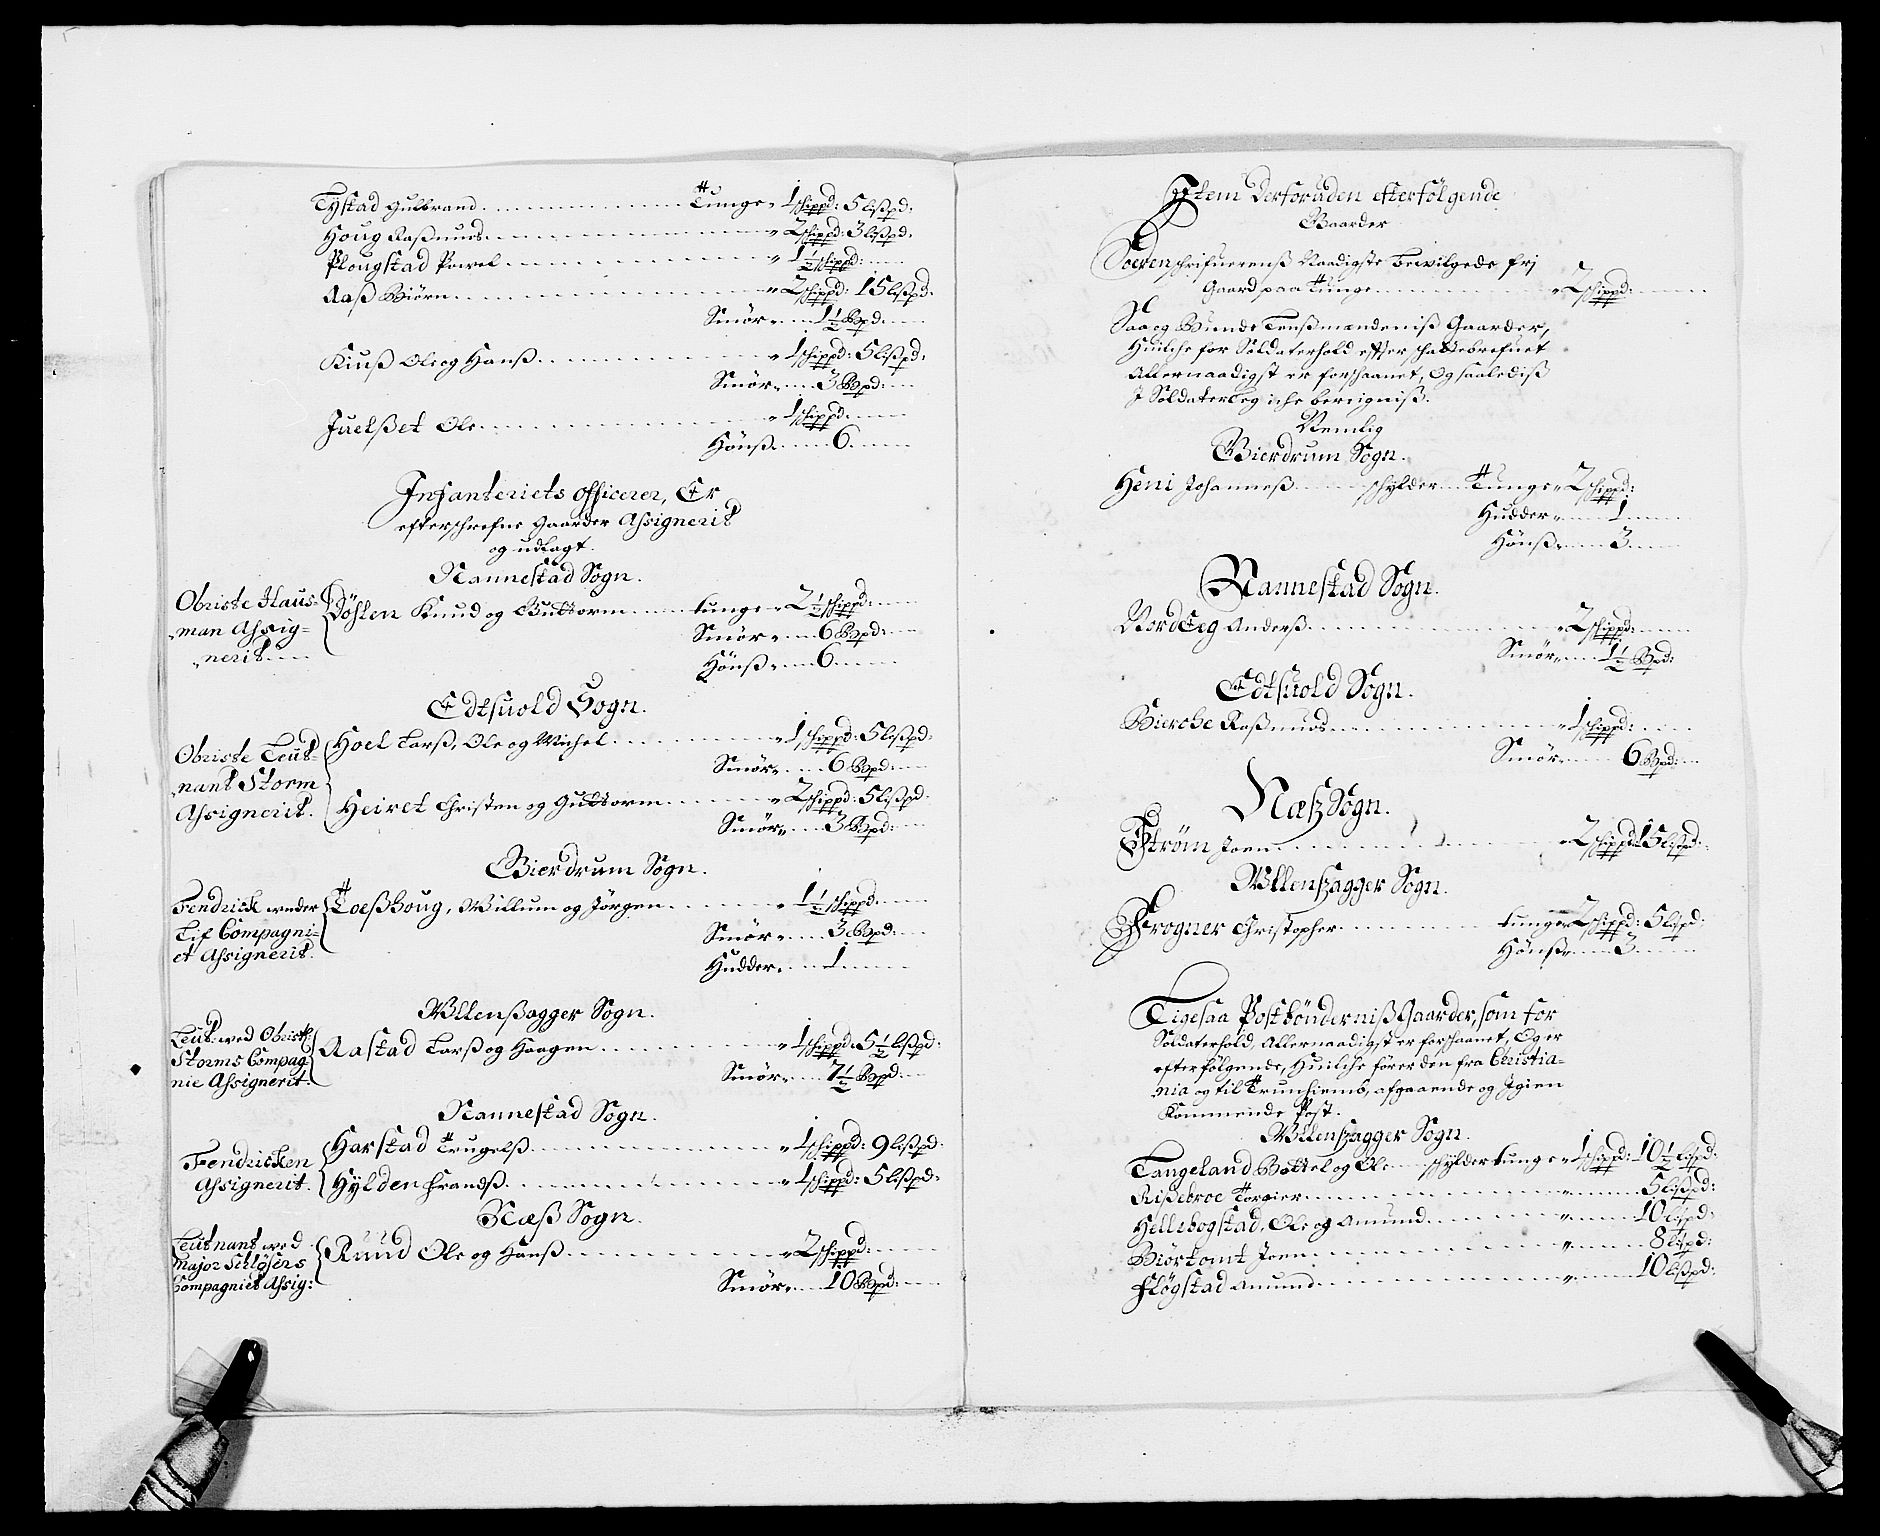 Tystad Gulbrand ........ Tunge „ 1 schippd: 5 lißpd:
Houg Raßmus ........ „ 2 schippd: 3 lißpd:
Plougstad Powel ........ „ 1½ schippd:
Aaß Biörn ........ „ 2 schippd: 15 lißpd:
Smör „ 1½ Bpd:
Kiuß Ole og Hanß ........ „ 1 schippd: 5 lißpd:
Smör „ 3 Bpd:
Juelßet Ole ........ „ 1 schippd:
Hönß „ 6
Infanteriets officerer, Er
efterschrefne Gaarder Assignerit
og udlagt.
Nannestad Sogn.
Obriste Haus-
man Assig-
nerit
Döhlen Knud og Guttorm ........ tunge „ 2½ schippd:
Smör „ 6 Bpd:
Hönß „ 6
Edtsuold Sogn.
Obriste Leut-
nant Storm
Assignerit.
Hoel Larß, Ole og Michel ........ „ 1 schippd: 5 lißpd:
Smör „ 6 Bpd:
Heiret Christen og Guttorm ........ „ 2 schippd: 5 lißpd:
Smör „ 3 Bpd:
Gierdrum Sogn.
Fendrick weder
Lif Compagni-
et Assignerit.
Loeßhoug, Willum og Jörgen ........ „ 1½ schippd:
Smör „ 3 Bpd:
Hudder „ 1
Wllenßagger Sogn.
Leut: wed Obrist:
Storms Compag
nie Assignerit.
Rastad Larß og Haagen ........ „ 1 schippd: 5½ lißpd:
Smör „ 7½ Bpd:
Nannestad Sogn.
Fendricken
Assignerit.
Harstad Trugelß ........ „ 1 schippd: 9 lißpd:
Hylden Frandß ........ „ 1 schippd: 5 lißpd:
Næß Sogn.
Leutnant wed
Major Schlösers
Compagniet Assig:
Ruud Ole og Hanß ........ „ 2 schippd:
Smör „ 10 Bpd:
Item Derforuden efterfölgende
Gaarder
Soeren schrifuerenß Naadigste bewilgede fri
Gaard paa Tunge ........ „ 2 schippd:
Saa og Bunde Lenßmændeniß Gaarder,
Huilche for Soldaterhold effter schattebrefuet
Allernaadigst er forschaanet, Og saalediß
J Soldaterleg iche bereigniß.
Nemlig
Gierdrum Sogn.
Heni Johanneß ........ schylder Tunge „ 2 schippd:
Hudder „ 1
Hönß „ 3
Nannestad Sogn.
Nordleg Anderß ........ „ 2 schippd:
Smör „ 1½ Bpd:
Edtsuold Sogn.
Bierche Raßmus ........ „ 1 schippd:
Smör „ 6 Bpd:
Næß Sogn.
Ström Joen ........ „ 2 schippd: 15 lißpd:
Wllenßagger Sogn.
Frogner Christopher ........ tunge „ 2 schippd: 5 lißpd:
Hönß „ 3
Ligesaa Postbönderniß Gaarder, som for
Soldaterhold, Allernaadigst er forschaanet, Og er
efterfölgende, Huilche förer den fra Christia-
nia og til Trunhiemb, afgaaende og Igien
Kommende Post.
Wllenßagger Sogn.
Langeland Bottel og Ole schylder tunge „ 1 schippd: 10½ lißpd:
Rißebroe Torgier ........ „ 5 lißpd:
Hellebogstad, Ole og Amund ........ „ 10 lißpd:
Biörtomt Joen ........ „ 8 lißpd:
Flögstad Amund ........ „ 10 lißpd: